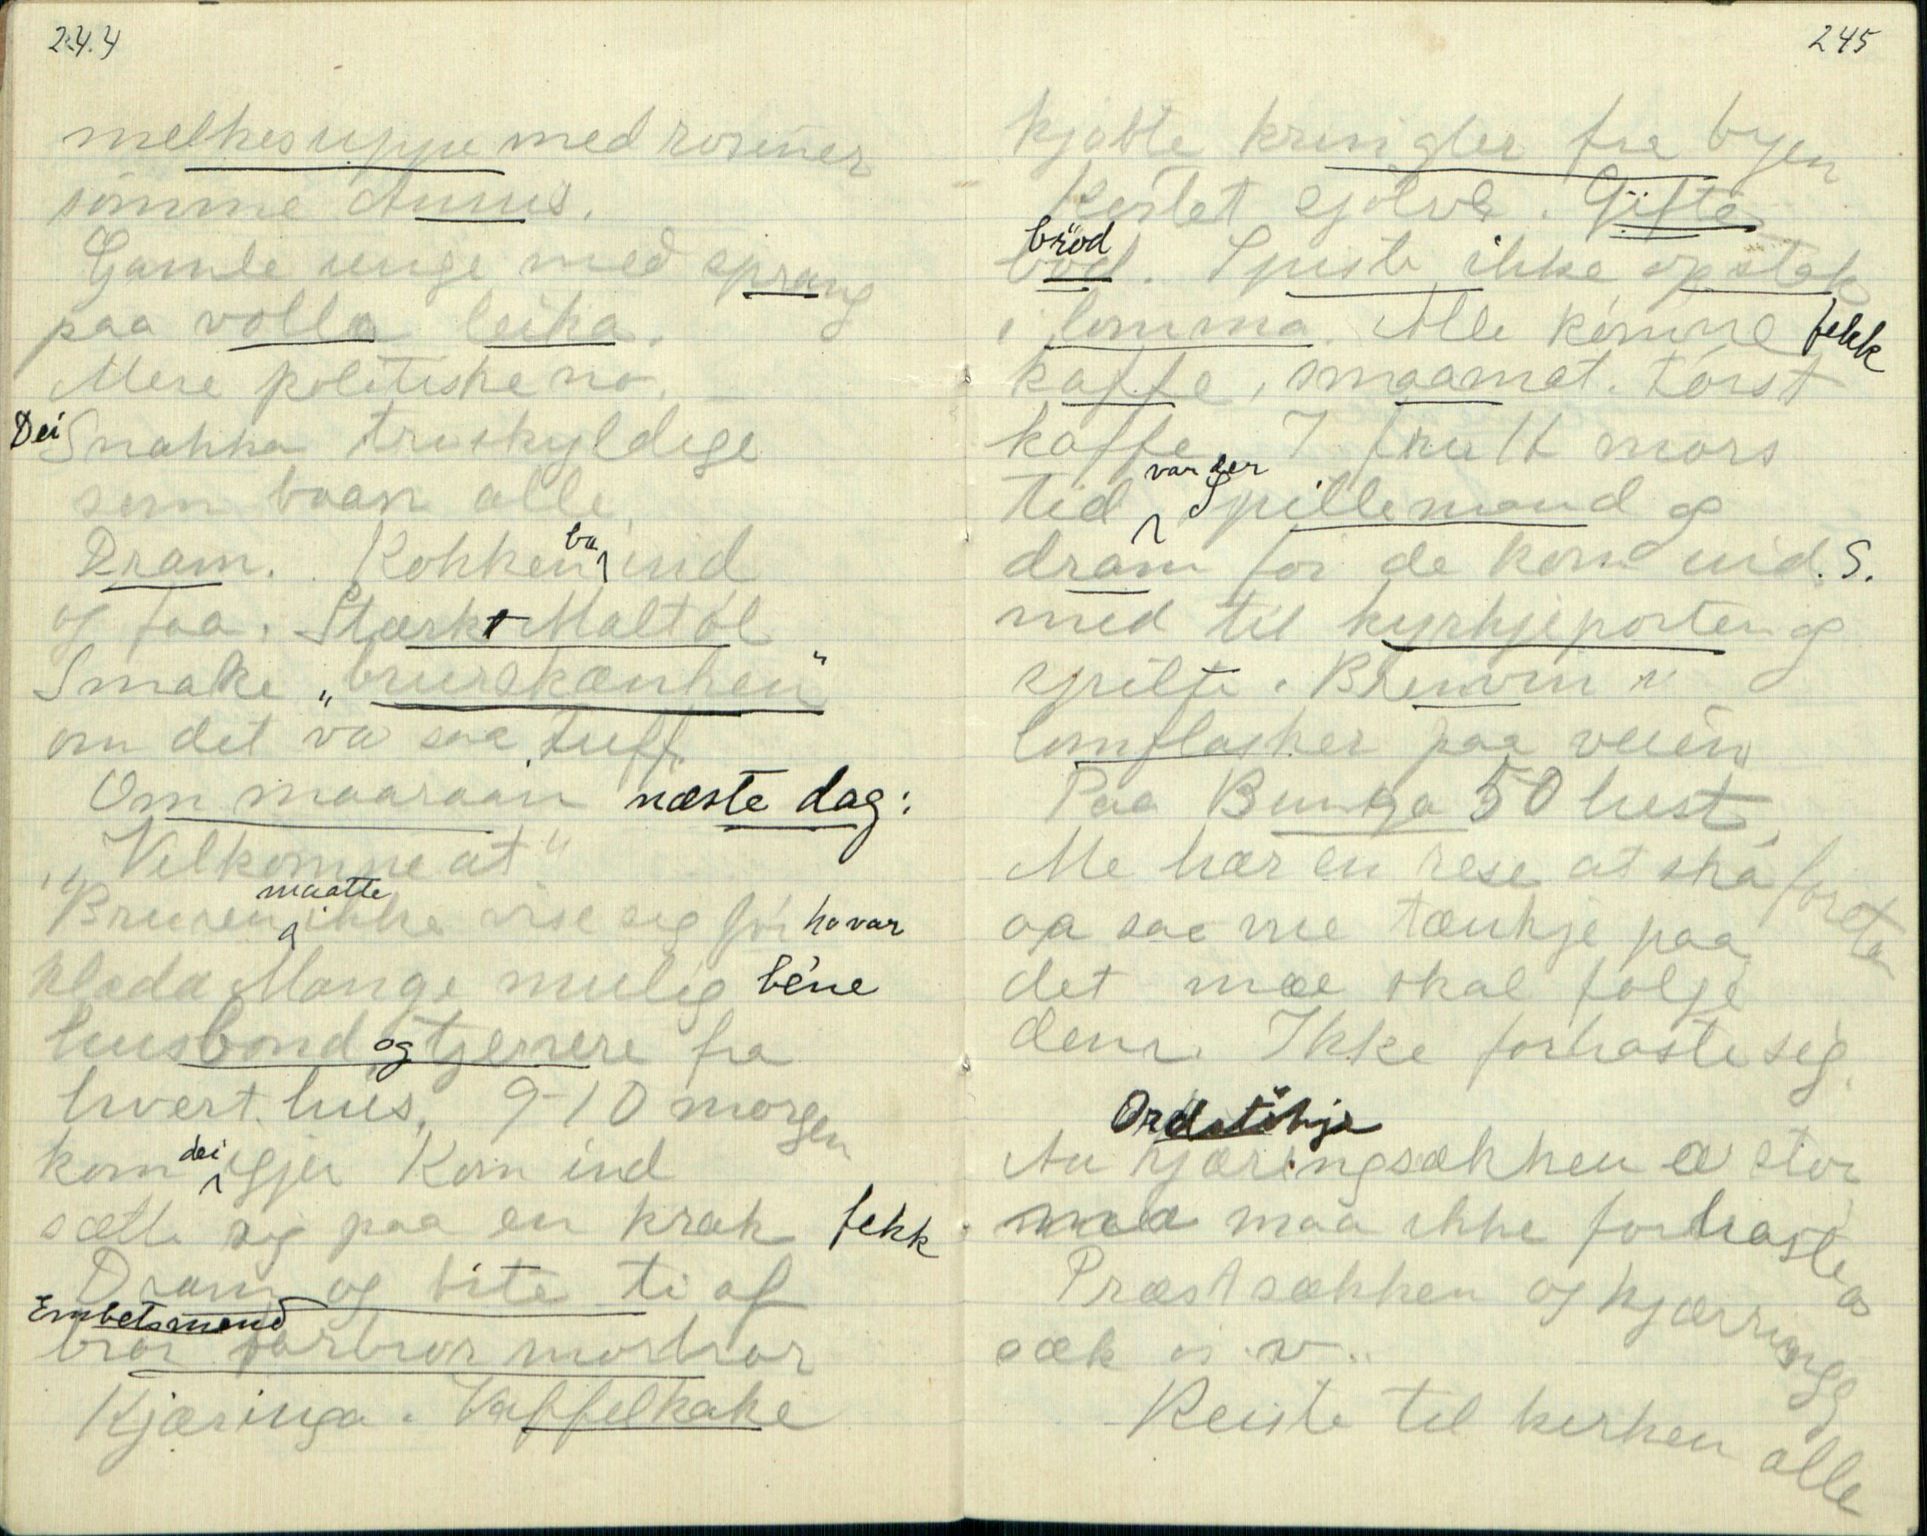 244
melkesuppe med rosiner
somme Annus.
Gamle unge med sprang
paa volla leika.
Mere politiske no.
Dei Snakka troskyldige
som baan alle.
Dram. Kokken ba ind
og faa. Stærkt Maltøl
Smake „brurskænken"
om det va saa tuff
Om maaraain næste dag:
„Velkomne at"
Bruren maatte ikke vise sig før ho var
klæda Mange mulig béne
husbond og tjenere fra
hvert hus. 9-10 morgen
kom dei igjen Kom ind
sætte sig paa en krak fekk
Dram og bite ti af
Embetsmend
bror farbror morbror
Kjæringa. Vaffelkake
245
kjøbte kringler fra byen
Kostet sjølve. Gifte
brød
bød. Spiste ikke op stak
i lomma. Alle komne fekk
kaffe, smaamat. Først
kaffe. I mors
tid var der Spillemand og
dram før de kom ind. S.
med til kyrkjeporten og
spilte. Brenvin i
lomflasker paa veien
Paa Bunga 50 hest,
Me hær en rese at ska foreta
oa saa me tænkje paa
det mæ skal følge
dem. Ikke forhaste sig.
Ordstikje
Au kjæringsækken æ stor
maa ikke forhaste os
Præstsækken og kjærringe
sæk o. s. v.
Reiste til kirken alle